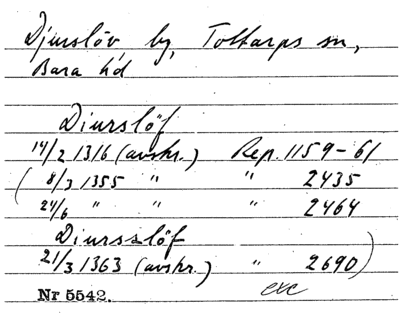 Djurslöv by, Tottarps sn,
Bara hd
Diurslöf
14/2 1316 (avskr.) Rep. 1159-61
(8/3 1355 " " 2435
24/6 " " " 2464
Diursslöf
21/3 1363 (avskr.) " 2690)
Nr 5542. exc